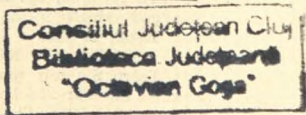 Consiliul Județean Cluj
Biblioteca Județeană
"Octavian Goga"